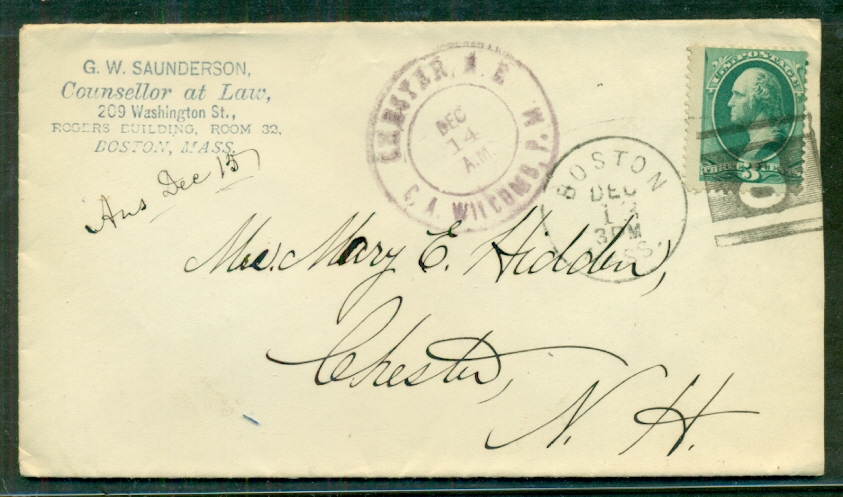 G. W. SAUNDERSON,
Counsellor at Law,
209 Washington St.,
ROGERS BUILDING, ROOM 32,
BOSTON, MASS.
Ans Dec 15
CHESTER, N. H.
DEC
14
A.M.
C. A. WILCOMB, P. M
BOSTON
DEC
3PM
MASS.
U.S. POSTAGE
3
Mrs. Mary E. Hidden,
Chester,
N. H.